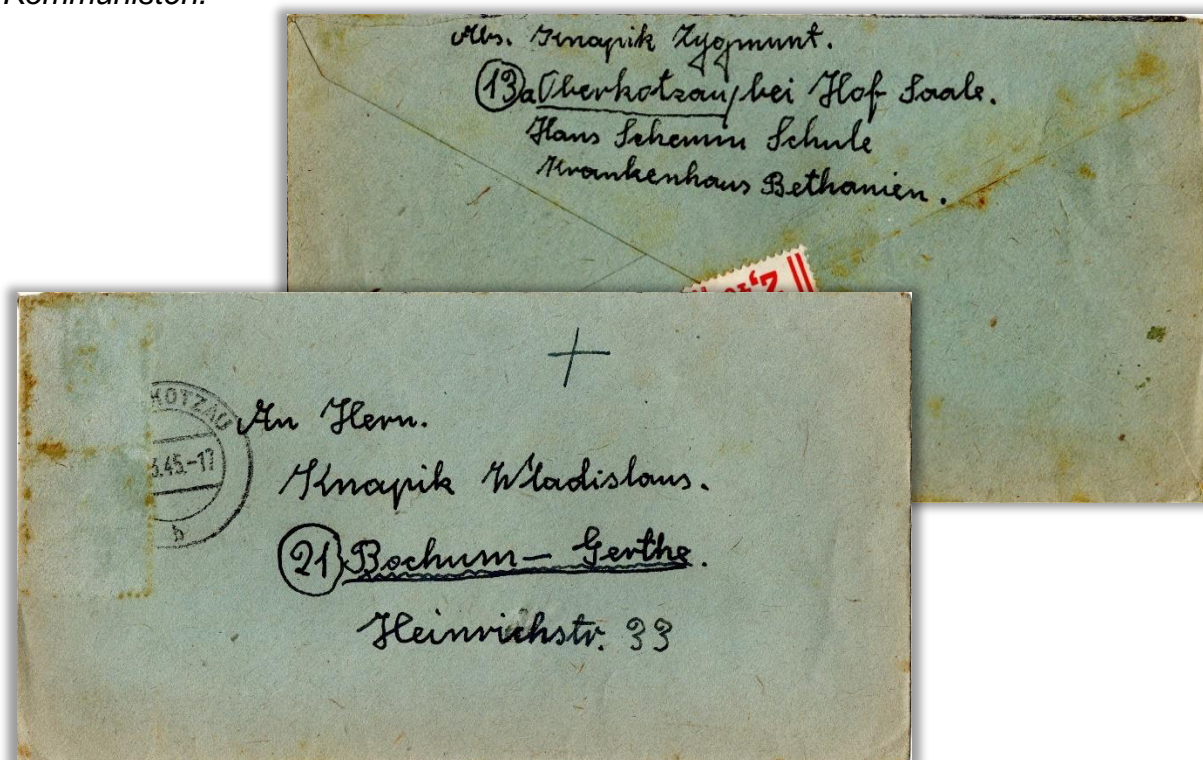 Kommunisten.
Abs. Knapik Zygmunt.
(13a Oberkotzau, bei Hof Saale.
Hans Schemm Schule
Krankenhaus Bethanien.
KOTZAU
3.45.-17
b
An Hern.
Knapik Wladislaus.
(21) Bochum – Gerthe.
Heinrichstr. 33